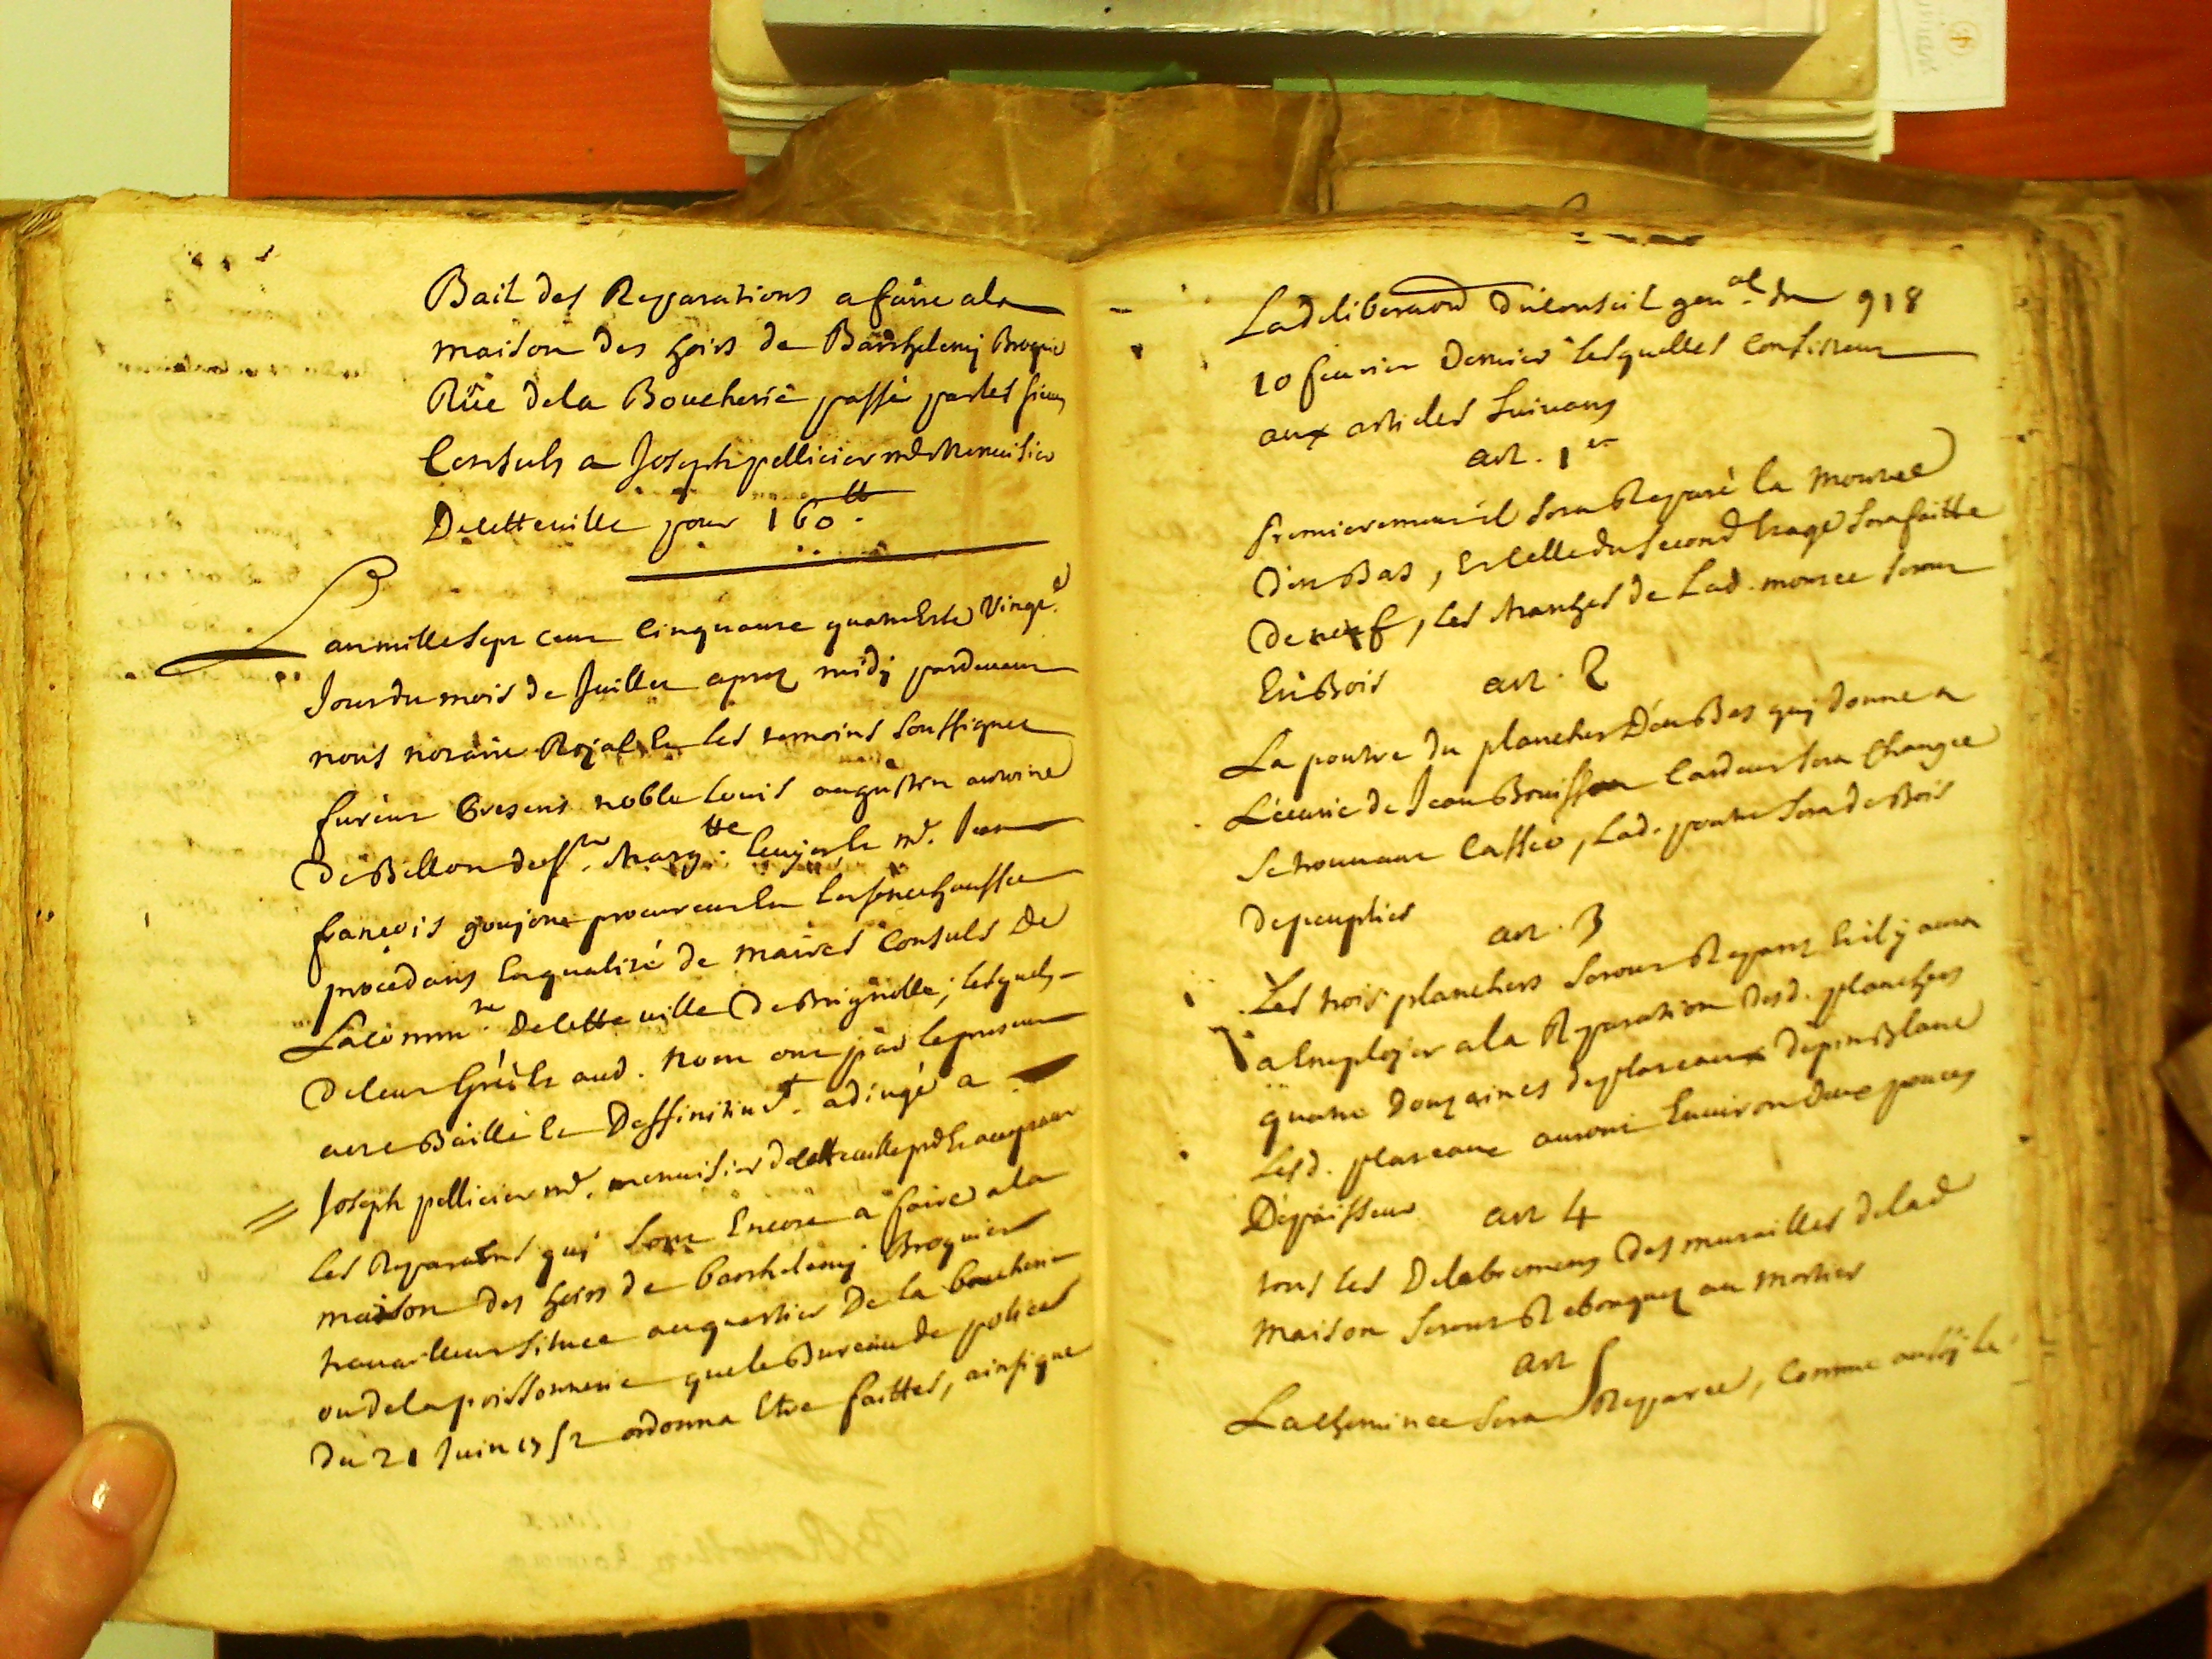 Bail des Reparations a faire a la
maison des hoirs de Barthelemy Broquie
Rüe de la Boucherie passé par les sieurs
Consuls a Joseph pellicier md Menuisier
De cette ville pour 160 tt.
L'an mille sept cent Cinquante quatre Et le Vingt e.
Jour du mois de Juillet aprez midy pardevant
nous notaire Royal Et les temoins soussignez
furent Presens noble Louis augustin antoine
De Billon et me. Jean
françois goujon procureur En La senechaussée
procedans En qualité de maires Consuls De
La comm te. De cette ville De Brignolle, Lesquels
De leur Gré Et aud. nom ont par Le present
acte Baillé Et Deffinitivt. adjugé a
Joseph pellicier md. menuisier De cette ville pnt Et acceptant
les Reparaons quy sont Encore a faire a la
maison des hoirs de barthelemy Broquier
travailleur située au quartier De la boucherie
ou de la poissonnerie que le Bureau de police
Du 21 Juin 1752 ordonna Etre faittes, ainsi que
La deliberaon du Conseil gen al. du 918
10 fevrier Dernier Lesquelles Consistent
aux articles suivans
art. 1 er
Premierement il sera Reparé la montée
D'en Bas, Et Celle du second Etage sera faitte
De neuf, les tranches de Lad. montée seront
En Bois art. 2
La poutre du plancher D'en Bas quy donne a
L'écurie de Jean Bouisson Cardeur sera Changée
se trouvant Cassée, Lad. poutre sera de Bois
De peuplier
art. 3
Les trois planchers seront Reparez Et il y aura
a Employer a la Reparation Desd. planchers
quatre Douzaines de plateaux De pin Blanc
Lesd. plateaux auront Environ Deux pouces
D'épaisseur art 4
tous les Delabremens Des murailles de lad
Maison seront Rebouquez au Mortier
art 5
La cheminée sera Reparée, Comme aussy Le